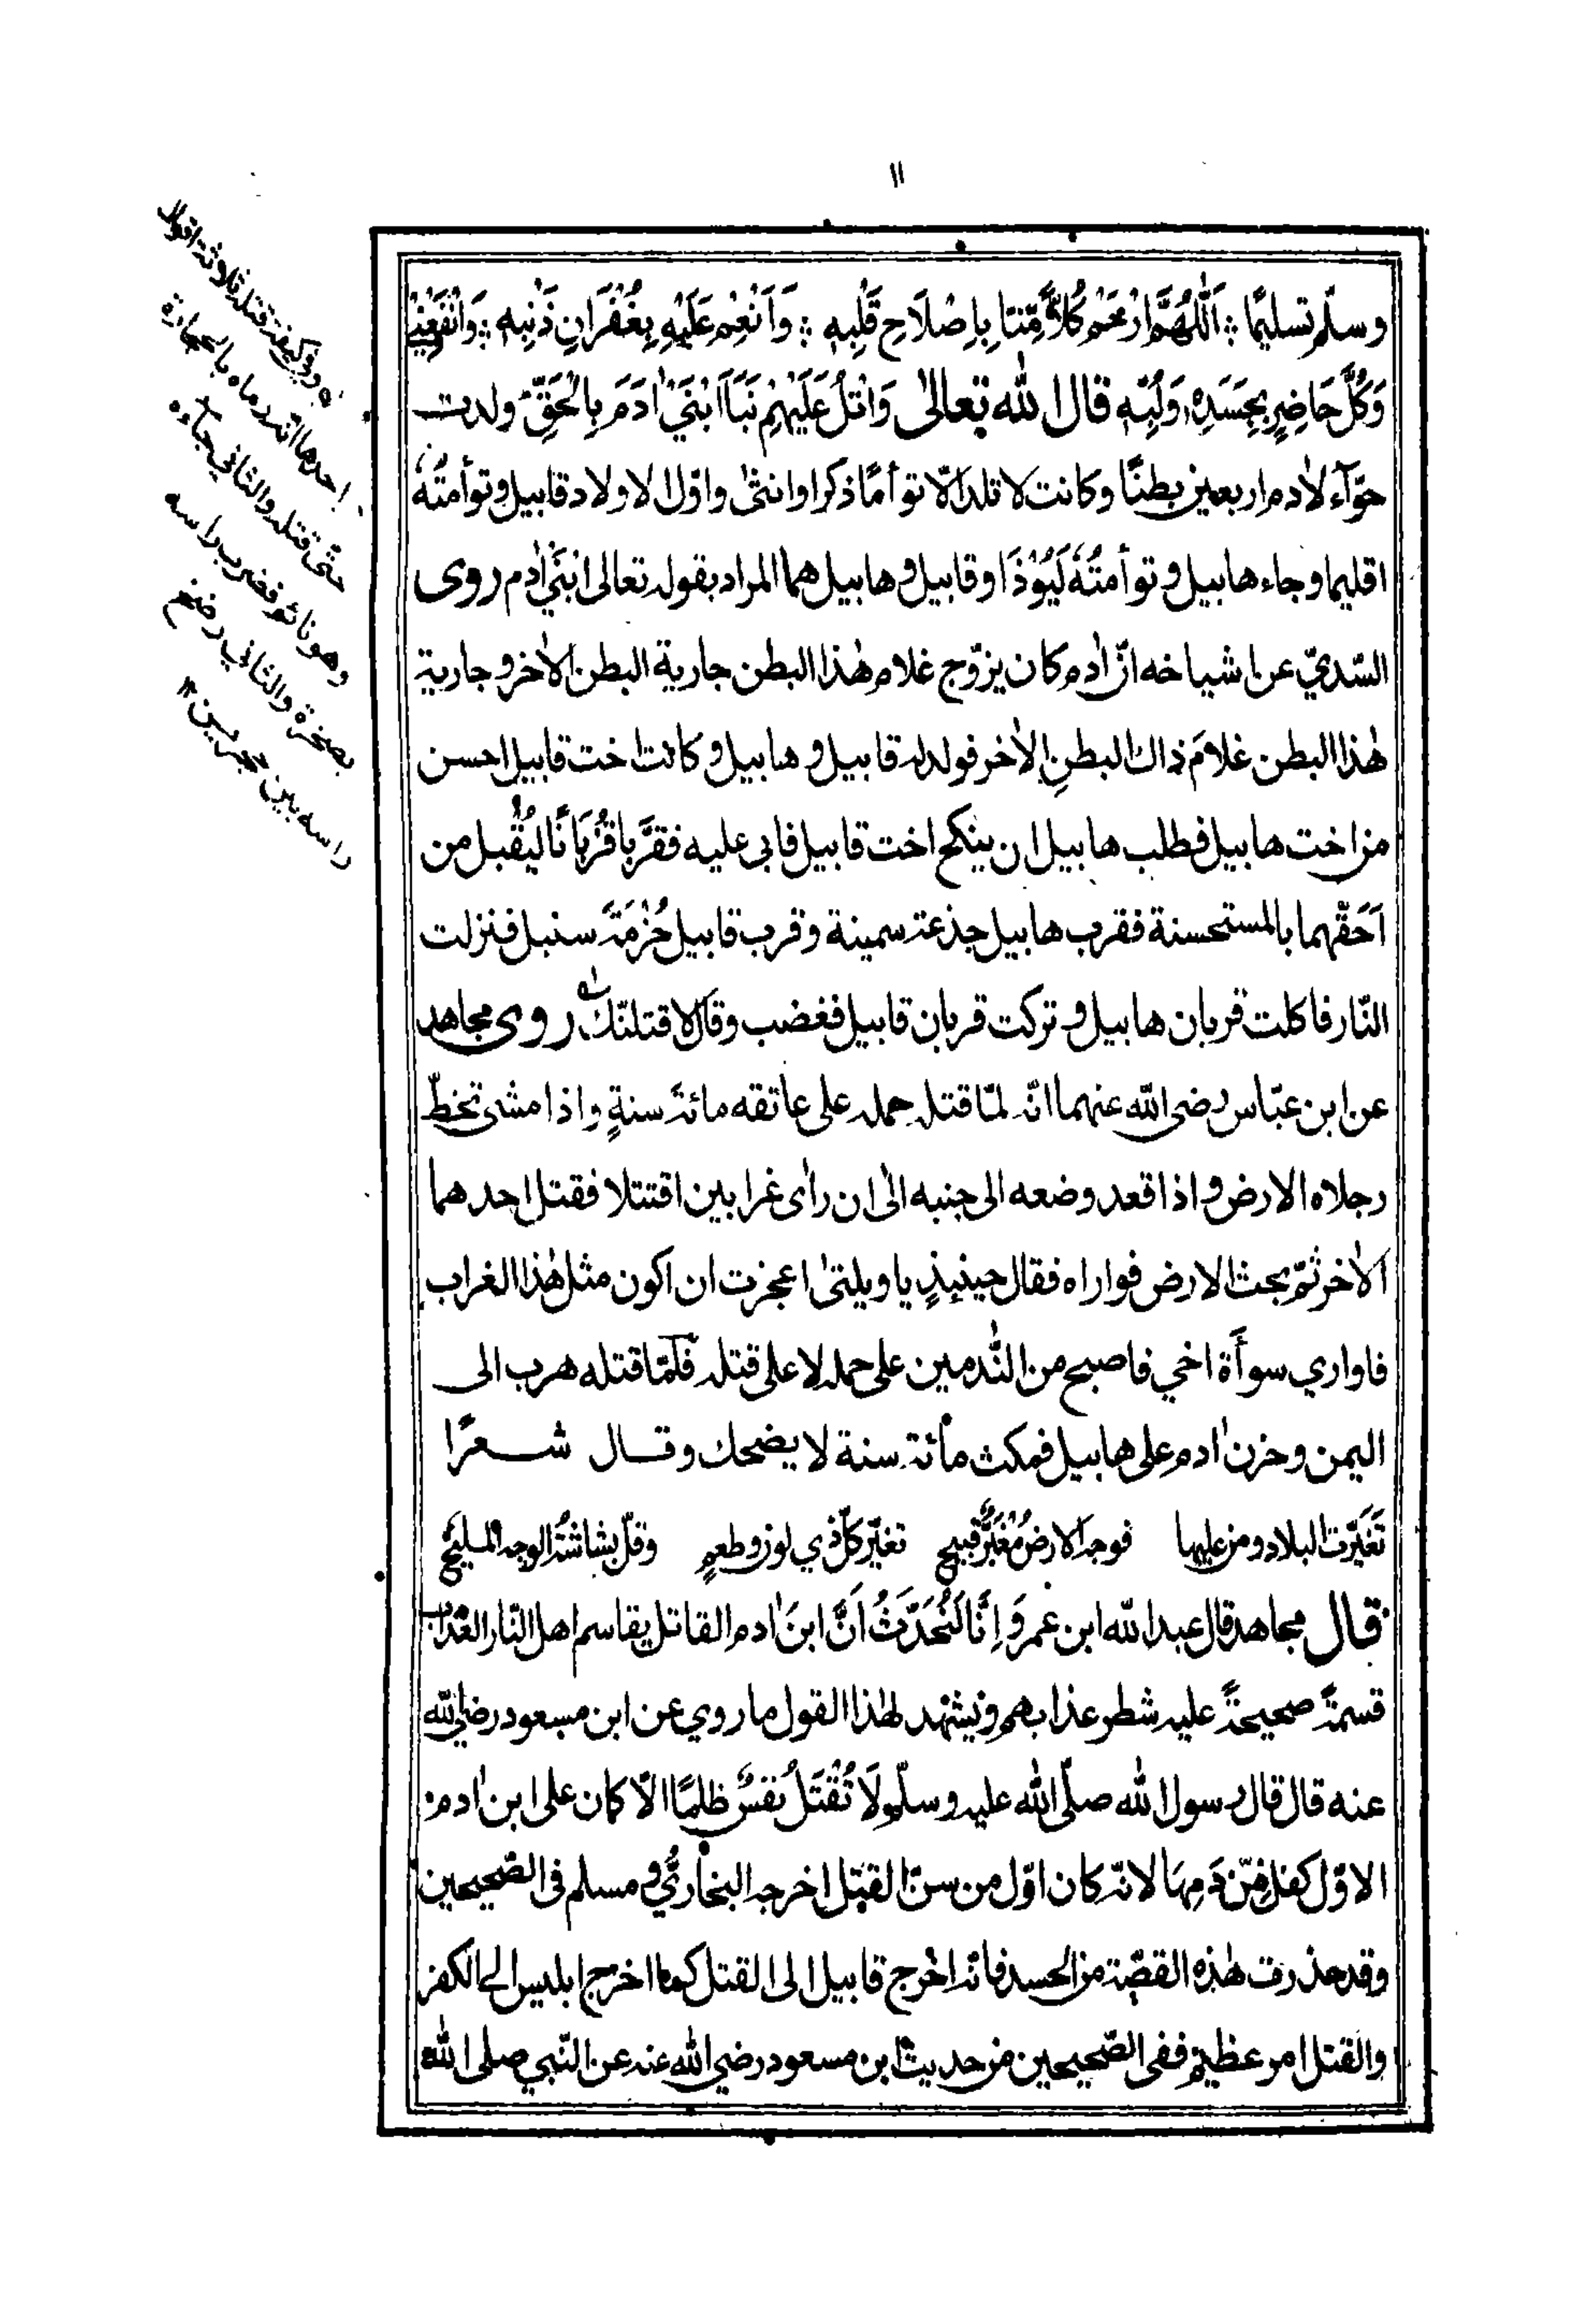 ١١
وسلّم تسليمًا ؞ اَللّٰهُمَّ ارْحَمْ كُلاًّ مِّنَّا بِاِصْلَاحِ قَلْبِهٖ ؞ وَاَنْعِمْ عَلَيْهِ بِغُفْرَانِ ذَنْبِهٖ ؞ وَانْفَعْنِيْ
وَكُلَّ حَاضِرٍ بِجَسَدِهٖ وَلُبِّهٖ قال الله تعالىٰ وَاتْلُ عَلَيْهِمْ نَبَاَ ابْنَيْ اٰدَمَ بِالْحَقِّ ولدت
حوّآء لاٰدم اربعين بطنًا وكانت لا تلد الّا توأمًا ذكرا وانثىٰ واوّل الاولاد قابيل وتوأمتُهٗ
اقليما وجاء هابيل وتوأمتُهٗ لَيُوْذَا وقابيل وهابيل هما المراد بقوله تعالى ابنَيْ اٰدم روى
السّديّ عن اشياخه انّ اٰدم كان يزوّج غلام هٰذا البطن جارية البطن الاٰخر وجارية
هٰذا البطن غلامَ ذاك البطنِ الاٰخر فولد له قابيل وهابيل وكانت اخت قابيل احسن
من اخت هابيل فطلب هابيل ان ينكح اخت قابيل فابى عليه فقرَّبا قُرْبَانًا ليُقْبل من
اَحَقّهما بالمستحسنة فقرب هابيل جذعة سمينة وقرب قابيل حُزْمَةَ سنبل فنزلت
النّار فاكلت قربان هابيل وتركت قربان قابيل فغضب وقال لاقتلنّك روى مجاهد
عن ابن عبّاس رضى الله عنهما انّه لمّا قتله حمله على عاتقه مائة سنةٍ واذا مشى تخطّ
رجلاه الارض واذا قعد وضعه الى جنبه الىٰ ان رأى غرابين اقتتلا فقتل احدهما
الاٰخر ثمّ بحث الارض فواراه فقال حينئذٍ يا ويلتىٰ اعجزت ان اكون مثل هٰذا الغراب
فاواري سوأة اخي فاصبح من النّٰدمين على حمله لا على قتله فلمّا قتله هرب الى
اليمن وحزن اٰدم على هابيل فمكث مائة سنة لا يضحك وقال شعرًا
تَغَيّرت البلاد ومن عليها فوجه الارض مُغْبَرٌّ قبيح تغيّر كلّ ذي لون وطعمٍ وقلّ بشاشةُ الوجه المليح
قال مجاهد قال عبد الله ابن عمر وَاِنَّا لَنُحَدَّثُ اَنَّ ابنَ اٰدم القاتل يقاسم اهل النّار العذاب
قسمةً صحيحةً عليه شطر عذابهم ويشهد لهٰذا القول ما روي عن ابن مسعود رضى الله
عنه قال قال رسول الله صلّى الله عليه وسلّم لَا تُقْتَلُ نفسٌ ظلمًا الّا كان على ابن اٰدم
الاوّل كفل مِّنْ دَمِهَا لانّه كان اوّل من سنّ القتل اخرجه البخاريُّ ومسلم فى الصّحيحين
وقد حذرت هٰذه القصّة من الحسد فانّه اخرج قابيل الى القتل كما اخرج ابليس الى الكفر
والقتل امر عظيم ففى الصّحيحين من حديث ابن مسعود رضي الله عنه عن النّبي صلى الله
له وفي كيفية قتله ثلاثة اقوال
احدها انه رماه بالحجارة
حتّى قتله والثاني جاءه
وهو نائم فضرب راسه
بصخرة والثاني رضخ
راسه بين حجرين ١٢